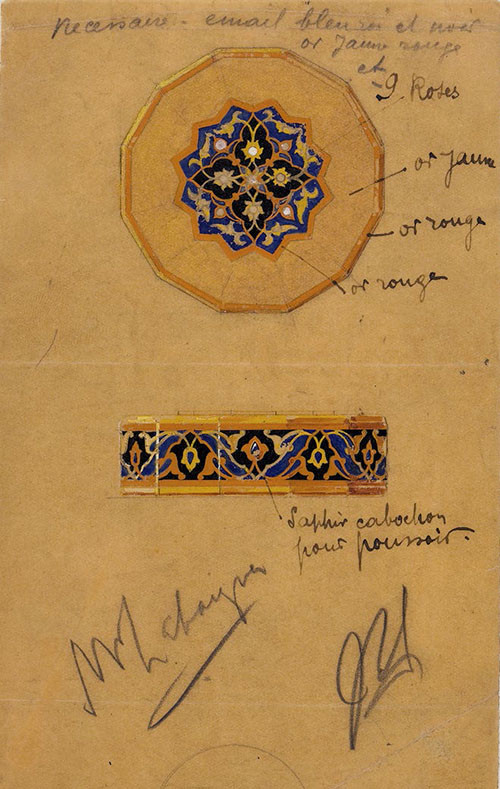 necessaire - email bleu roi et noir
or jaune rouge
et
9. Roses
or jaune
or rouge
or rouge
Saphir cabochon
pour poussoir.